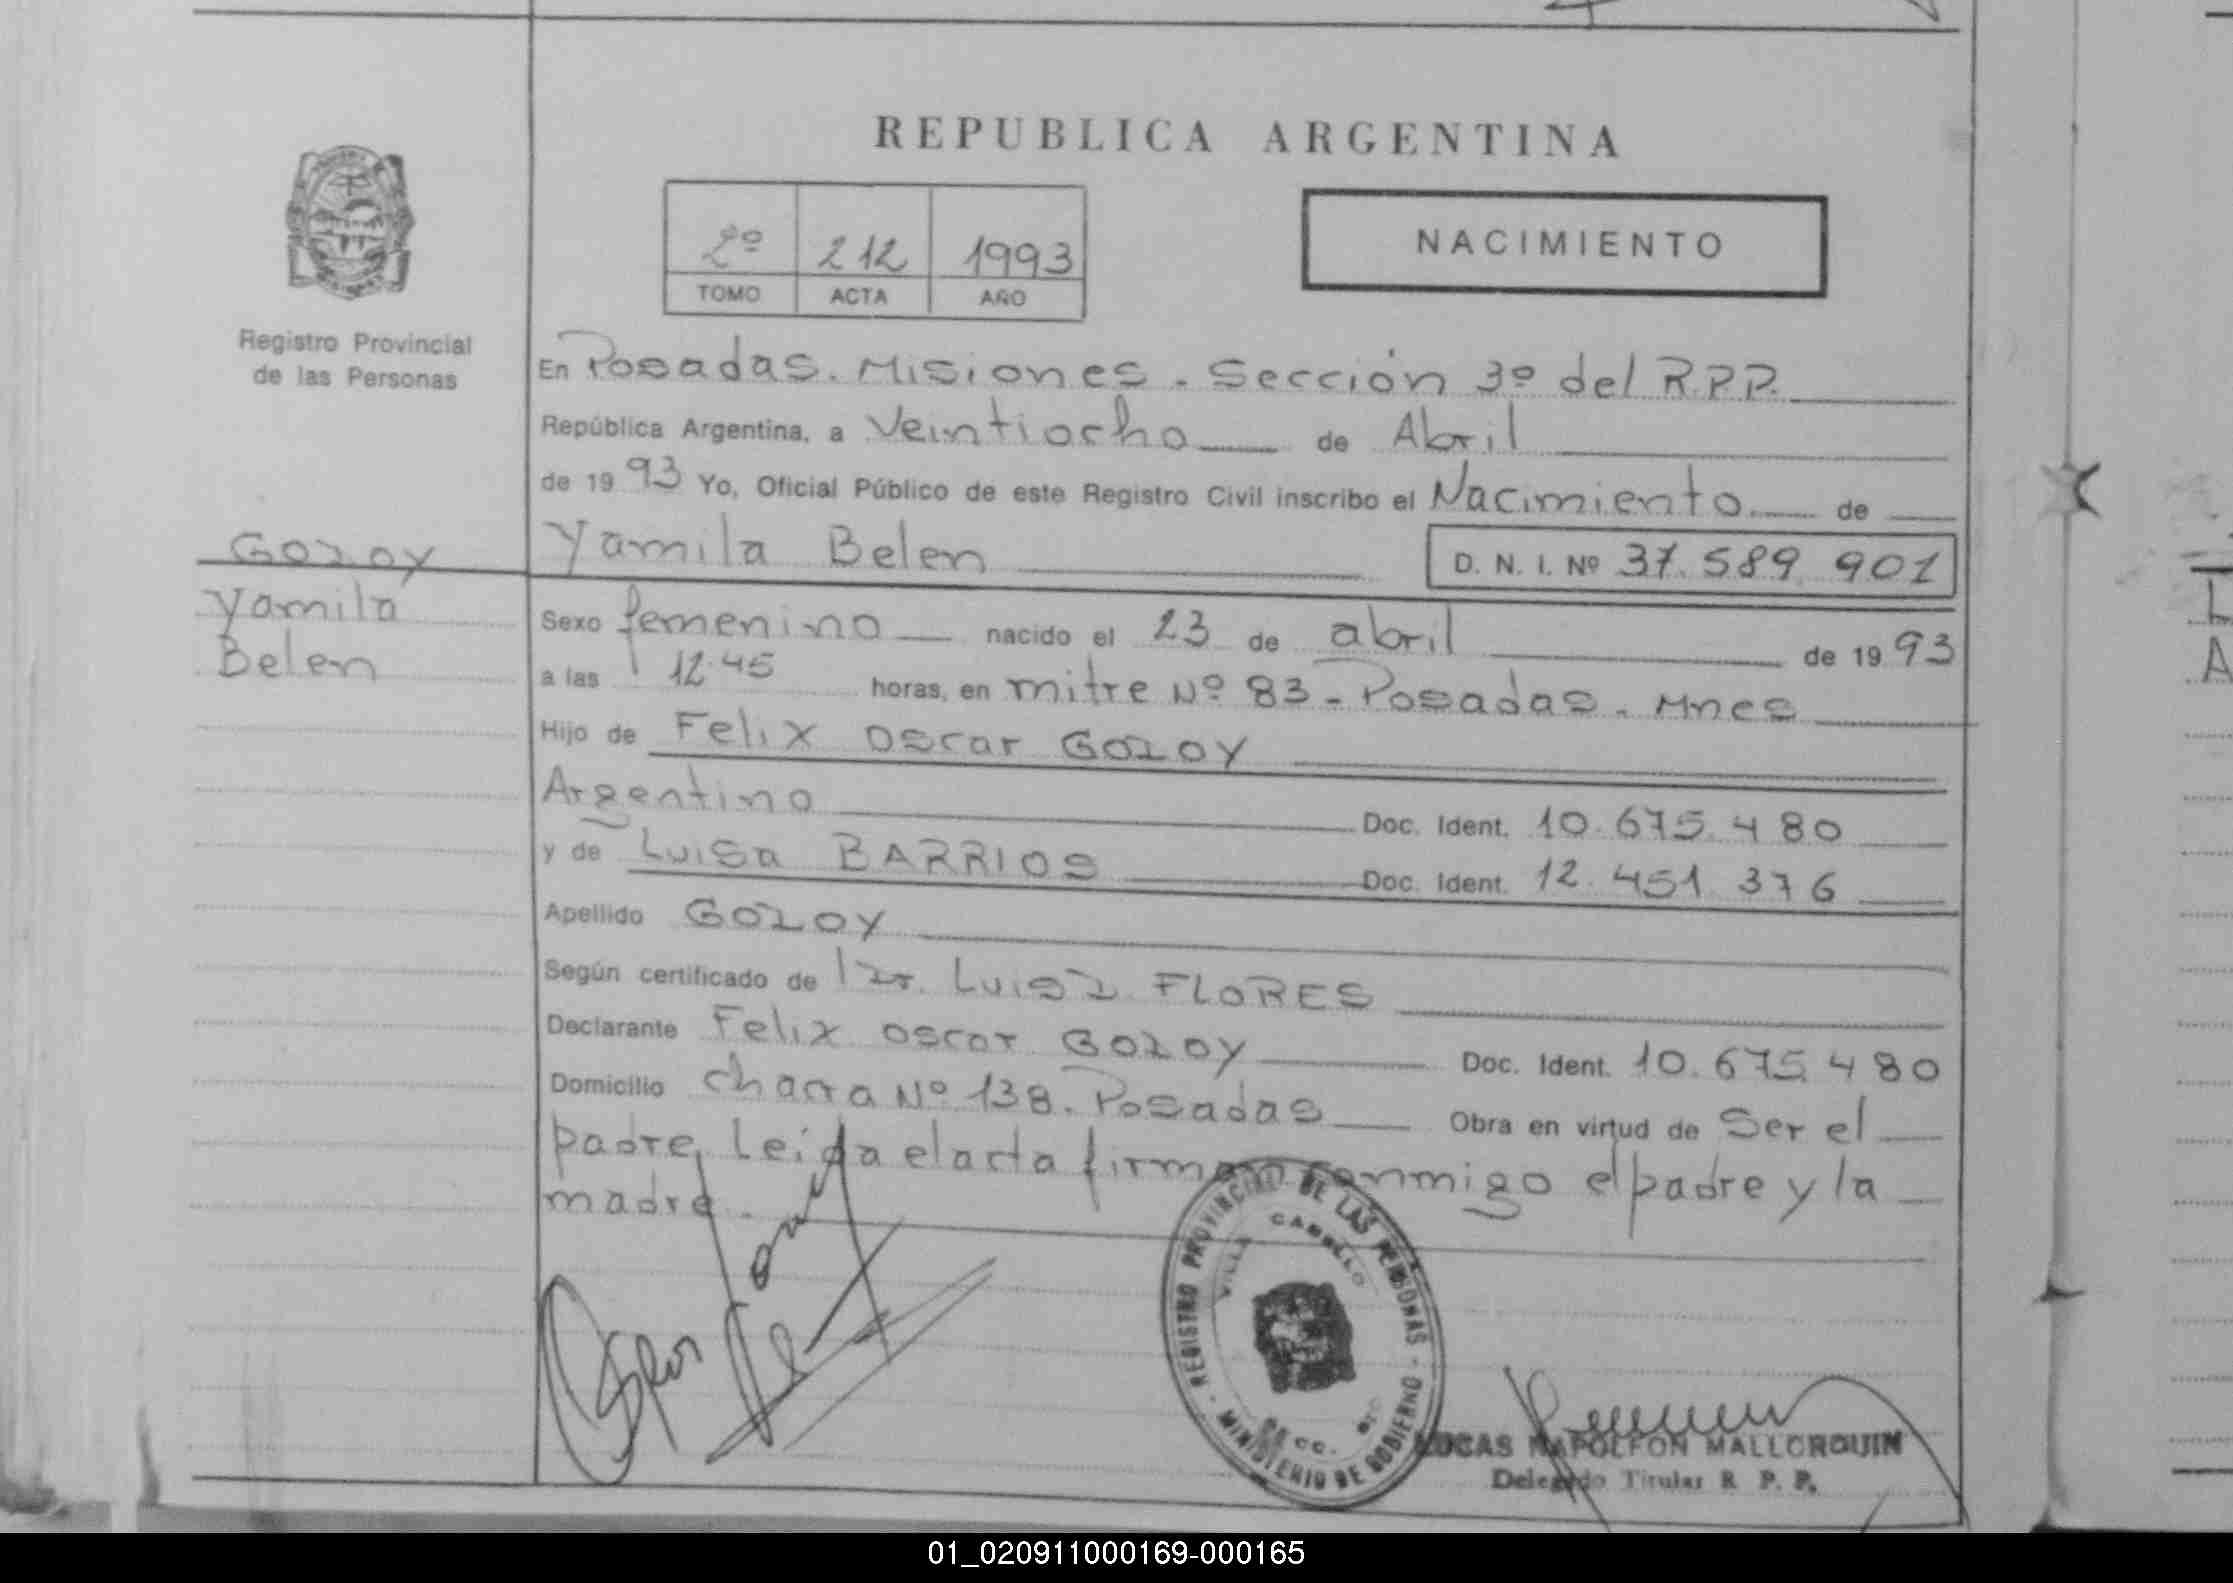 REPUBLICA ARGENTINA
2º 212 1993
TOMO ACTA AÑO
NACIMIENTO
Registro Provincial
de las Personas
En Posadas. Misiones. Sección 3º del R.P.P.
República Argentina, a Veintiocho de Abril
de 1993 Yo, Oficial Público de este Registro Civil inscribo el Nacimiento de
Yamila Belen D. N. I. Nº 37.589.901
GOZOY
Yamila
Belen
Sexo femenino nacido el 23 de abril de 1993
a las 12.45 horas, en mitre Nº 83 - Posadas. Mnes
Hijo de Felix Oscar GOZOY
Argentino Doc. Ident. 10.675.480
y de Luisa BARRIOS Doc. Ident. 12.451.376
Apellido GOZOY
Según certificado de Dr. Luis J. FLORES
Declarante Felix Oscar GOZOY Doc. Ident. 10.675.480
Domicilio Chacra Nº 138. Posadas Obra en virtud de Ser el
padre, Leida el acta firman conmigo el padre y la
madre.
REGISTRO PROVINCIAL DE LAS PERSONAS - MINISTERIO DE GOBIERNO -
VILLA CABELLO
LUCAS NAPOLEON MALLORQUIN
Delegado Titular R. P. P.
01_020911000169-000165